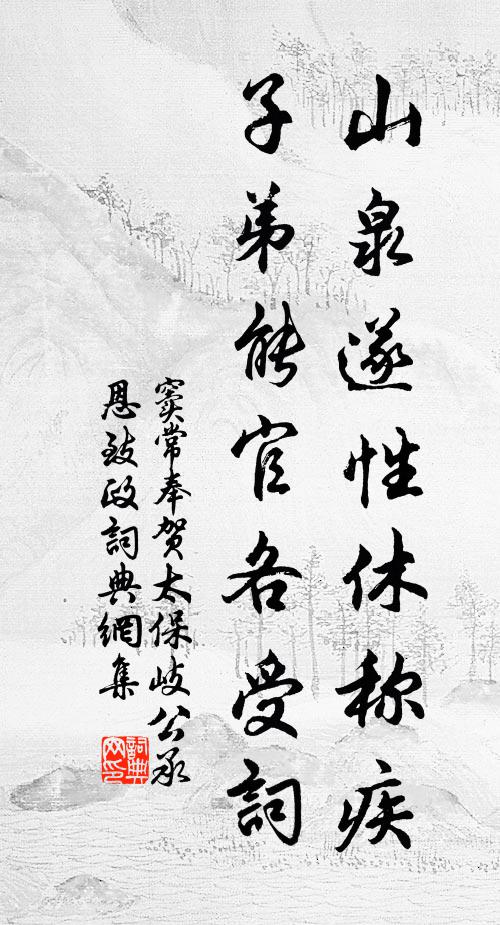 山泉遂性休称疾
子弟能官各受詞
窦常奉贺太保岐公承
恩致政詞典網集
詞典
网印